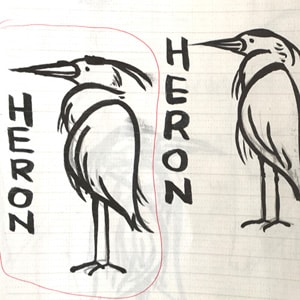 HERON
HERON